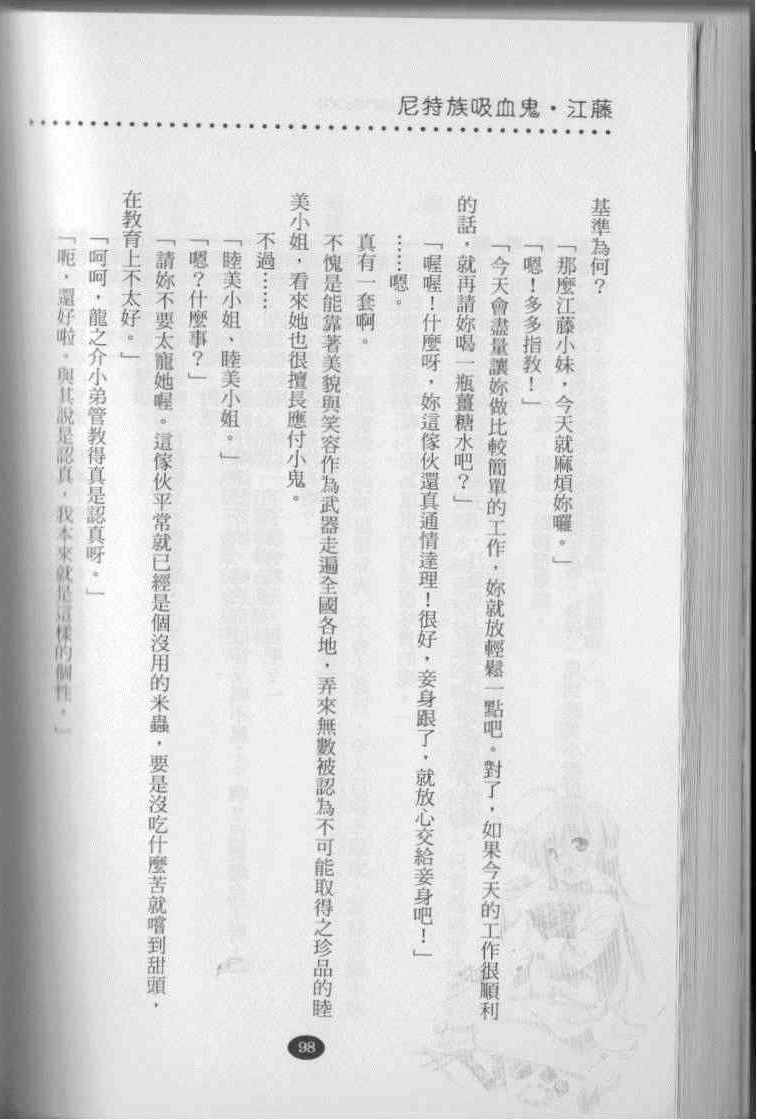 尼特族吸血鬼・江藤
基準為何？
「那麼江藤小妹，今天就麻煩妳囉。」
「嗯！多多指教！」
「今天會盡量讓妳做比較簡單的工作，妳就放輕鬆一點吧。對了，如果今天的工作很順利
的話，就再請妳喝一瓶薑糖水吧？」
「喔喔！什麼呀，妳這傢伙還真通情達理！很好，妾身跟了，就放心交給妾身吧！」
……嗯。
真有一套啊。
不愧是能靠著美貌與笑容作為武器走遍全國各地，弄來無數被認為不可能取得之珍品的睦
美小姐，看來她也很擅長應付小鬼。
不過……
「睦美小姐、睦美小姐。」
「嗯？什麼事？」
「請妳不要太寵她喔。這傢伙平常就已經是個沒用的米蟲，要是沒吃什麼苦就嚐到甜頭，
在教育上不太好。」
「呵呵，龍之介小弟管教得真是認真呀。」
「呃，還好啦。與其說是認真，我本來就是這樣的個性。」
98